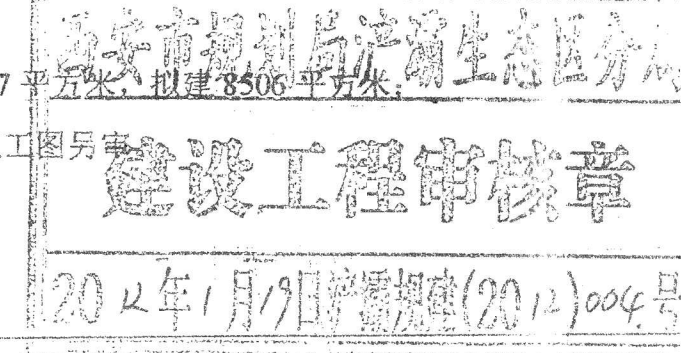 西安市规划局浐灞生态区分局
7平方米，拟建8506平方米；
工图另审
建设工程审核章
2012年1月19日浐灞规建(2012)004号